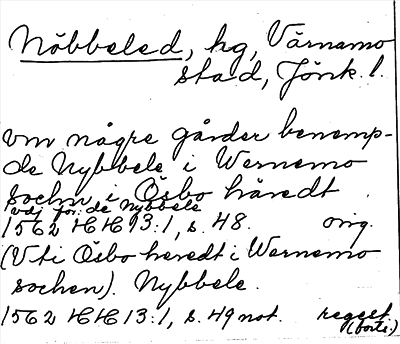 Nöbbeled, hg, Värnamo
stad, Jönk. l.
vm någre gårder benemp-
de Nybbele i Wernemo
sochn i Össbo häredt.
vdj för: de Nybbele
1562 HH 13:1, s. 48. orig.
(Vti Ösbo heredt i Wernemo
sochen). Nybbele.
1562 HH 13:1, s. 49 not. regest
(forts.)